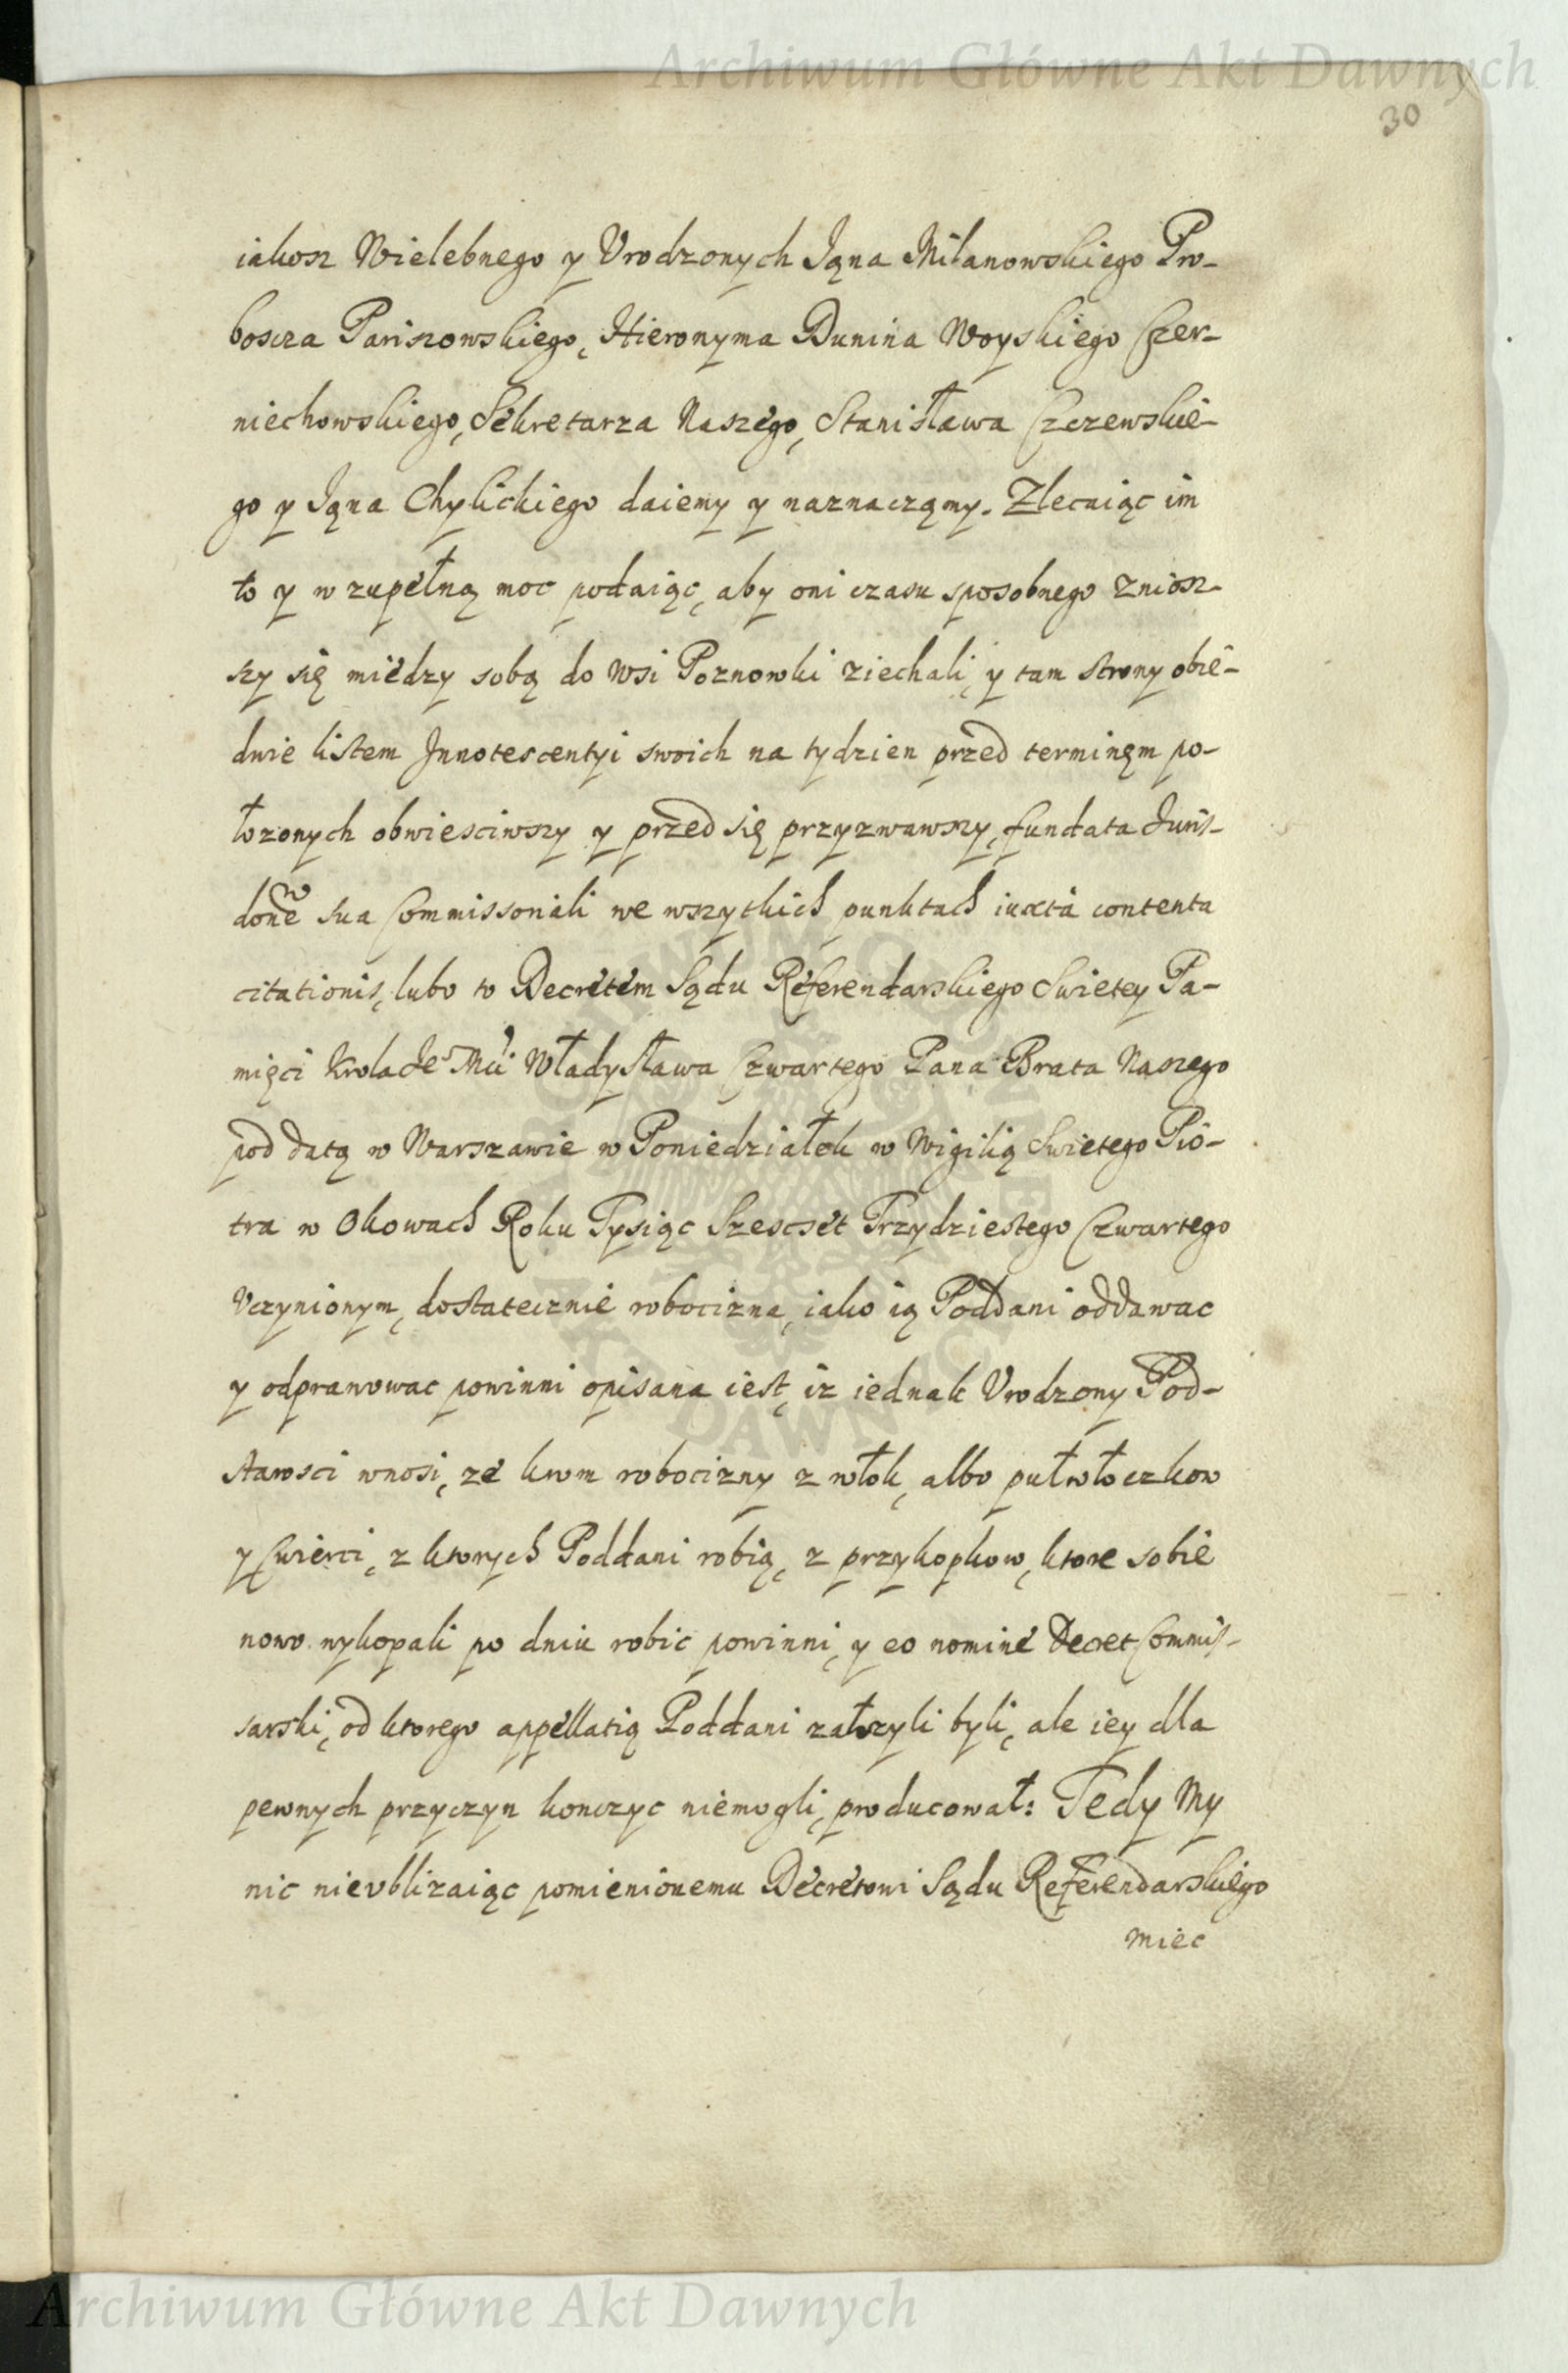 Archiwum Główne Akt Dawnych
30
iakosz Wielebnego y Vrodzonych Iąna Milanowskiego Pro-
boscza Pariszowskiego, Hieronyma Dunina Woyskiego Czer-
niechowskiego, Sekretarza Naszego, Stanisława Czczewskie-
go y Iąna Chylickiego daiemy y naznaczamy. Zlecaiąc im
to y w zupełną moc podaiąc, aby oni czasu sposobnego zniosz-
szy się miedzy sobą do Wsi Poznowki ziechali, y tam strony obie-
dwie listem Innotescentyi swoich na tydzien przed terminęm po-
łozonych obwiesciwszy y przed się przyzwawszy, fundata Juris-
done sua Commissoriali we wszytkich punktach iuxta contenta
citationis, lubo to Decretem Sądu Referendarskiego Swietey Pa-
mięci Krola Je° Mci Władysława Czwartego Pana Brata Naszego
pod datą w Warszawie w Poniedziałek w Wigilią Swietego Pio-
tra w Okowach Roku Tysiąc Szescset Trzydziestego Czwartego
Vczynionym, dostatecznie robocizna, iako ią Poddani oddawac
y odprawowac powinni opisana iest, iz iednak Vrodzony Pod-
starosci wnosi, ze krom robocizny z włok, albo pułwłoczkow
y Cwierci, z ktorych Poddani robią, z przykopkow, ktore sobie
nowo wykopali po dniu robic powinni, y eo nomine Decret Commis-
sarski, od ktorego appellatią Poddani załozyli byli, ale iey dla
pewnych przyczyn konczyc niemogli, producował: Tedy My
nic nievblizaiąc pomienionemu Decretowi Sądu Referendarskiego
miec
Archiwum Główne Akt Dawnych